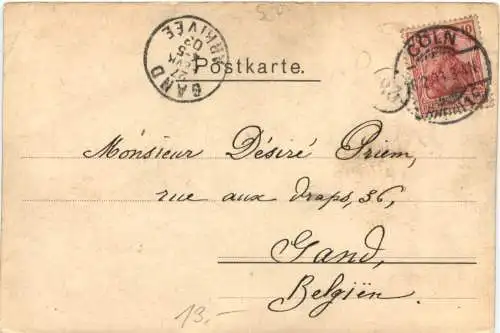 CÖLN
GAND
ARRIVÉE
Postkarte.
Monsieur Désiré Priem,
rue aux draps, 36,
Gand,
Belgiën.
13.-